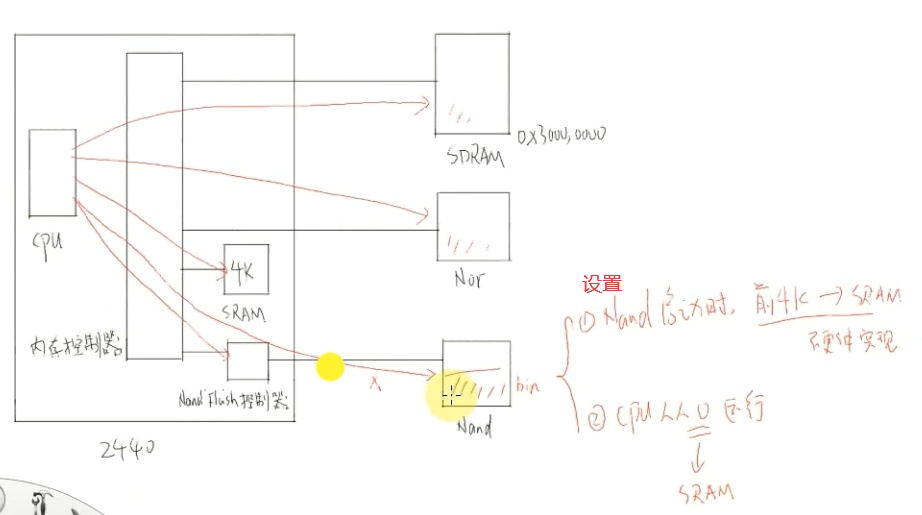 SDRAM
0x3000,0000
CPU
Nor
4K
SRAM
设置
① Nand 启动时, 前4K → SRAM
硬件实现
内存控制器
Nand Flash控制器
X
bin
Nand
② CPU从 0 运行
SRAM
2440